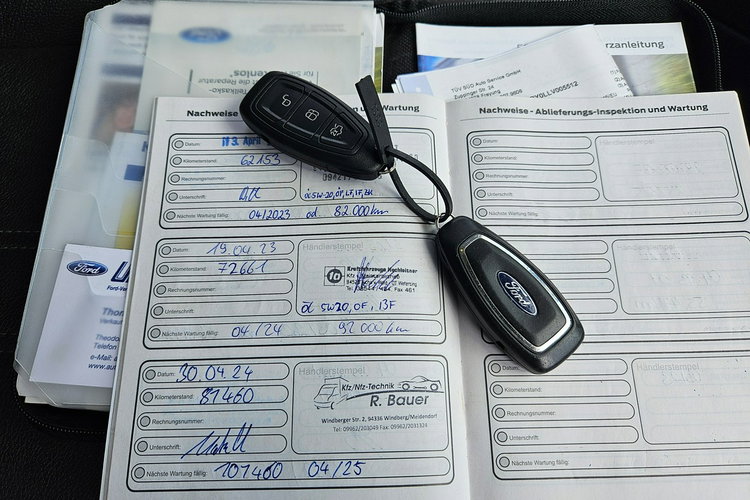 Ford
für Sie kostenlos*
Teilkasko-
TÜV SÜD Auto Service GmbH
Zuppinger Str. 34
Nachweise - Ablieferungs-Inspektion und Wartung
Datum: 13. April
Kilometerstand: 62153
Rechnungsnummer:
Unterschrift:
öl 5W-20, ÖF, LF, IF, ZK
Nächste Wartung fällig: 04/2023 od 82.000 km
Datum: 19.04.23
Händlerstempel
Kilometerstand: 72661
Kraftfahrzeuge Nachleitner
Rechnungsnummer:
Unterschrift:
öl 5W20, ÖF, BF
Nächste Wartung fällig: 04/24 92000 km
Datum: 30.04.24
Händlerstempel
Kilometerstand: 81460
Kfz/Nfz-Technik
R. Bauer
Rechnungsnummer:
Windberger Str. 2, 94336 Windberg/Meidendorf
Tel: 09962/203049 Fax: 09962/2031324
Unterschrift:
Nächste Wartung fällig: 101460 04/25
Nachweise - Ablieferungs-Inspektion und Wartung
Datum:
Händlerstempel
Kilometerstand:
Rechnungsnummer:
Unterschrift:
Nächste Wartung fällig:
Händlerstempel
Datum:
Händlerstempel
Kilometerstand:
Rechnungsnummer:
Unterschrift:
Nächste Wartung fällig:
Ford
Ford
Telefon
e-Mail: